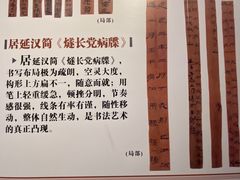 (局部)
居延汉简《燧长党病牒》
▶ 居延汉简《燧长党病牒》，
书写布局极为疏朗，空灵大度，
构形上方扁不一，随意而就；用
笔上轻重缓急，顿挫分明，节奏
感很强，线条有率有谨，随性移
动，整体自然生动，是书法艺术
的真正凸现。
(局部)